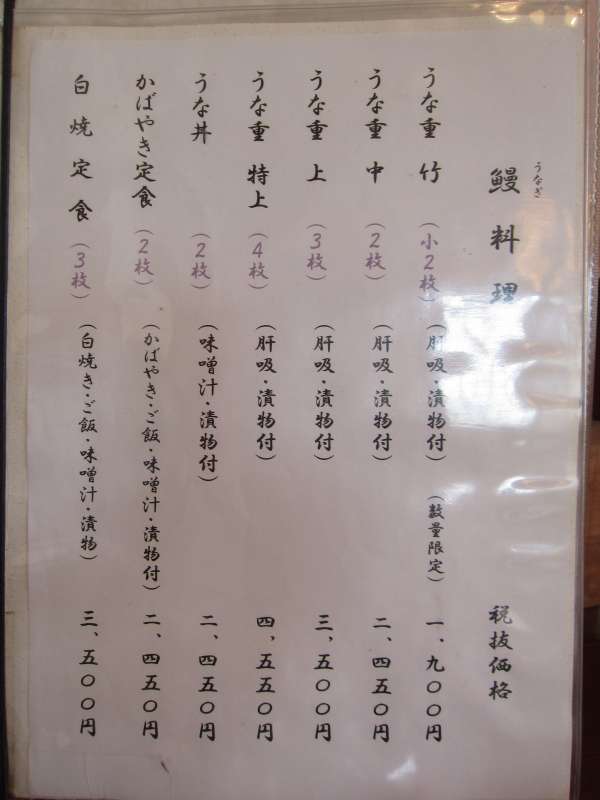 うなぎ
鰻料理 税抜価格
うな重 竹 (小2枚) (肝吸・漬物付) (数量限定) 一、九〇〇円
うな重 中 (2枚) (肝吸・漬物付) 二、四五〇円
うな重 上 (3枚) (肝吸・漬物付) 三、五〇〇円
うな重 特上 (4枚) (肝吸・漬物付) 四、五五〇円
うな丼 (2枚) (味噌汁・漬物付) 二、四五〇円
かばやき定食 (2枚) (かばやき・ご飯・味噌汁・漬物付) 二、四五〇円
白焼定食 (3枚) (白焼き・ご飯・味噌汁・漬物) 三、五〇〇円